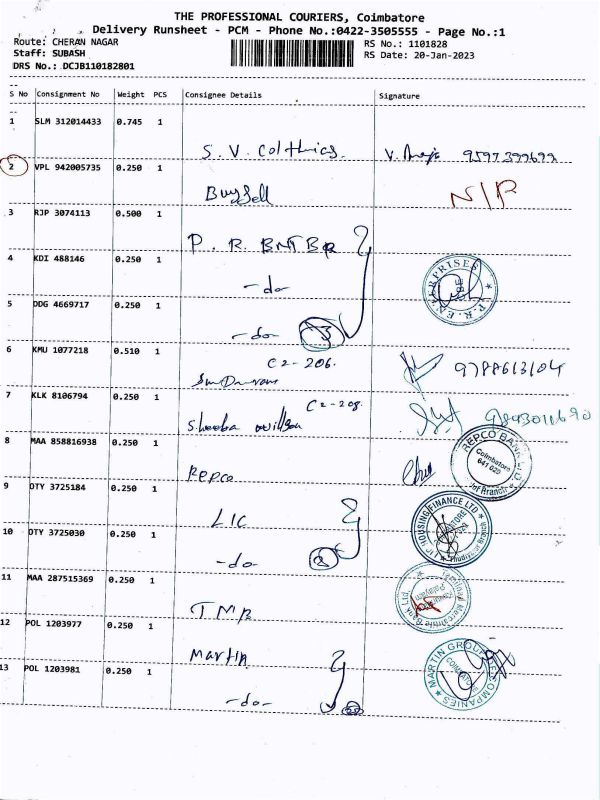 THE PROFESSIONAL COURIERS, Coimbatore
Delivery Runsheet - PCM - Phone No.:0422-3505555 - Page No.:1
Route: CHERAN NAGAR
RS No.: 1101828
Staff: SUBASH
RS Date: 20-Jan-2023
DRS No.: DCJB110182801
S No Consignment No Weight PCS Consignee Details Signature
1 SLM 312014433 0.745 1
S. V. Colthings. 9597399699
2 VPL 942005735 0.250 1
Buysell N/P
3 RJP 3074113 0.500 1
P. R.
4 KDI 488146 0.250 1
-do-
P.R. ENTERPRISES CBE
5 DDG 4669717 0.250 1
-do- 3
6 KMU 1077218 0.510 1
C2-206. 9788613104
7 KLK 8106794 0.250 1
C2-208.
Sheeba 9893011690
8 MAA 858816938 1
REPCO BANK LTD Coimbatore 641 025 Branch
Repco
9 OTY 3725184 0.250 1
LIC
LIC HOUSING FINANCE LTD
10 OTY 3725030 0.250 1
-do- 2
11 MAA 287515369 0.250 1
TMB
Mercantile Bank Ltd.
12 POL 1203977 0.250 1
Martin
MARTIN GROUP OF COMPANIES COIMBATORE
13 POL 1203981 0.250 1
-do-